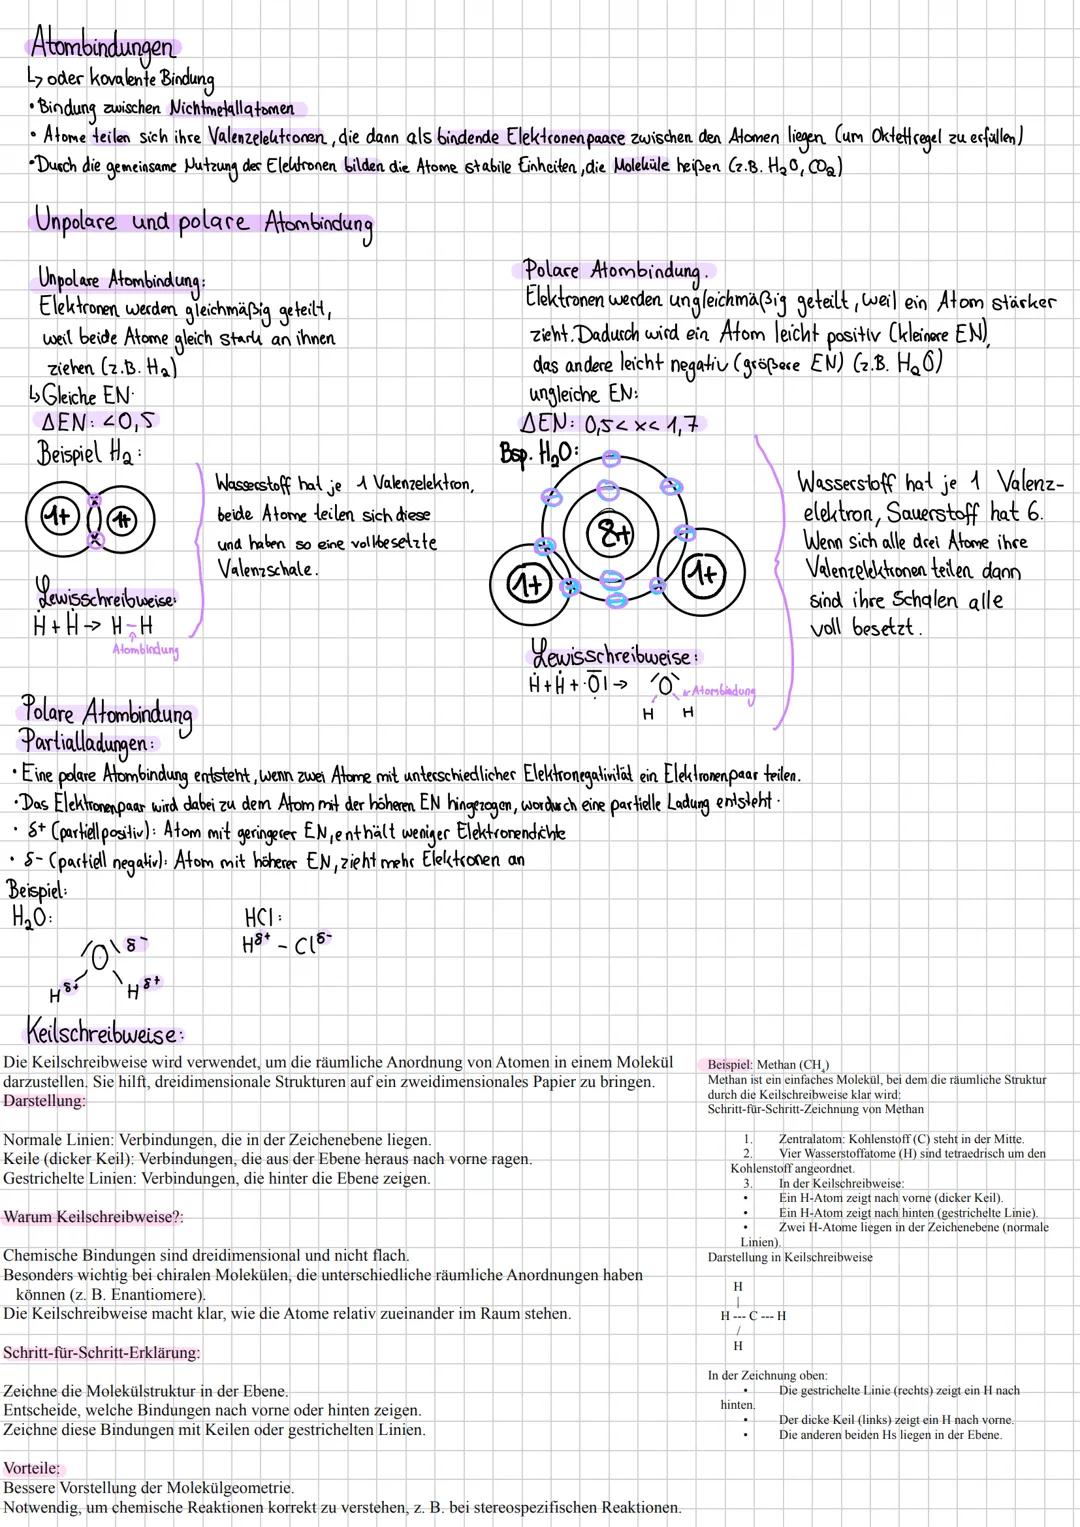 Atombindungen
↳ oder kovalente Bindung
• Bindung zwischen Nichtmetallatomen
• Atome teilen sich ihre Valenzelektronen, die dann als bindende Elektronenpaare zwischen den Atomen liegen (um Oktettregel zu erfüllen)
• Durch die gemeinsame Nutzung der Elektronen bilden die Atome stabile Einheiten, die Moleküle heißen (z.B. H₂O, CO₂)
Unpolare und polare Atombindung
Unpolare Atombindung:
Elektronen werden gleichmäßig geteilt,
weil beide Atome gleich stark an ihnen
ziehen (z.B. H₂)
↳ Gleiche EN:
ΔEN: <0,5
Beispiel H₂:
1+ 1+
Wasserstoff hat je 1 Valenzelektron,
beide Atome teilen sich diese
und haben so eine vollbesetzte
Valenzschale.
Lewisschreibweise:
Ḣ + Ḣ → H–H
Atombindung
Polare Atombindung.
Elektronen werden ungleichmäßig geteilt, weil ein Atom stärker
zieht. Dadurch wird ein Atom leicht positiv (kleinere EN),
das andere leicht negativ (größere EN) (z.B. H₂O)
ungleiche EN:
ΔEN: 0,5 < x < 1,7
Bsp. H₂O:
8+
1+ 1+
Wasserstoff hat je 1 Valenz-
elektron, Sauerstoff hat 6.
Wenn sich alle drei Atome ihre
Valenzelektronen teilen dann
sind ihre Schalen alle
voll besetzt.
Lewisschreibweise:
Ḣ + Ḣ + ·O̅| → O
Atombindung
H H
Polare Atombindung
Partialladungen:
• Eine polare Atombindung entsteht, wenn zwei Atome mit unterschiedlicher Elektronegativität ein Elektronenpaar teilen.
• Das Elektronenpaar wird dabei zu dem Atom mit der höheren EN hingezogen, wordurch eine partielle Ladung entsteht.
• δ+ (partiell positiv): Atom mit geringerer EN, enthält weniger Elektronendichte
• δ- (partiell negativ): Atom mit höherer EN, zieht mehr Elektronen an
Beispiel:
H₂O:
O δ-
H δ+ H δ+
HCl:
Hδ+ – Clδ-
Keilschreibweise:
Die Keilschreibweise wird verwendet, um die räumliche Anordnung von Atomen in einem Molekül
darzustellen. Sie hilft, dreidimensionale Strukturen auf ein zweidimensionales Papier zu bringen.
Darstellung:
Normale Linien: Verbindungen, die in der Zeichenebene liegen.
Keile (dicker Keil): Verbindungen, die aus der Ebene heraus nach vorne ragen.
Gestrichelte Linien: Verbindungen, die hinter die Ebene zeigen.
Warum Keilschreibweise?:
Chemische Bindungen sind dreidimensional und nicht flach.
Besonders wichtig bei chiralen Molekülen, die unterschiedliche räumliche Anordnungen haben
können (z. B. Enantiomere).
Die Keilschreibweise macht klar, wie die Atome relativ zueinander im Raum stehen.
Schritt-für-Schritt-Erklärung:
Zeichne die Molekülstruktur in der Ebene.
Entscheide, welche Bindungen nach vorne oder hinten zeigen.
Zeichne diese Bindungen mit Keilen oder gestrichelten Linien.
Vorteile:
Bessere Vorstellung der Molekülgeometrie.
Notwendig, um chemische Reaktionen korrekt zu verstehen, z. B. bei stereospezifischen Reaktionen.
Beispiel: Methan (CH₄)
Methan ist ein einfaches Molekül, bei dem die räumliche Struktur
durch die Keilschreibweise klar wird:
Schritt-für-Schritt-Zeichnung von Methan
1. Zentralatom: Kohlenstoff (C) steht in der Mitte.
2. Vier Wasserstoffatome (H) sind tetraedrisch um den
Kohlenstoff angeordnet.
3. In der Keilschreibweise:
• Ein H-Atom zeigt nach vorne (dicker Keil).
• Ein H-Atom zeigt nach hinten (gestrichelte Linie).
• Zwei H-Atome liegen in der Zeichenebene (normale
Linien).
Darstellung in Keilschreibweise
H
|
H --- C --- H
/
H
In der Zeichnung oben:
• Die gestrichelte Linie (rechts) zeigt ein H nach
hinten.
• Der dicke Keil (links) zeigt ein H nach vorne.
• Die anderen beiden Hs liegen in der Ebene.